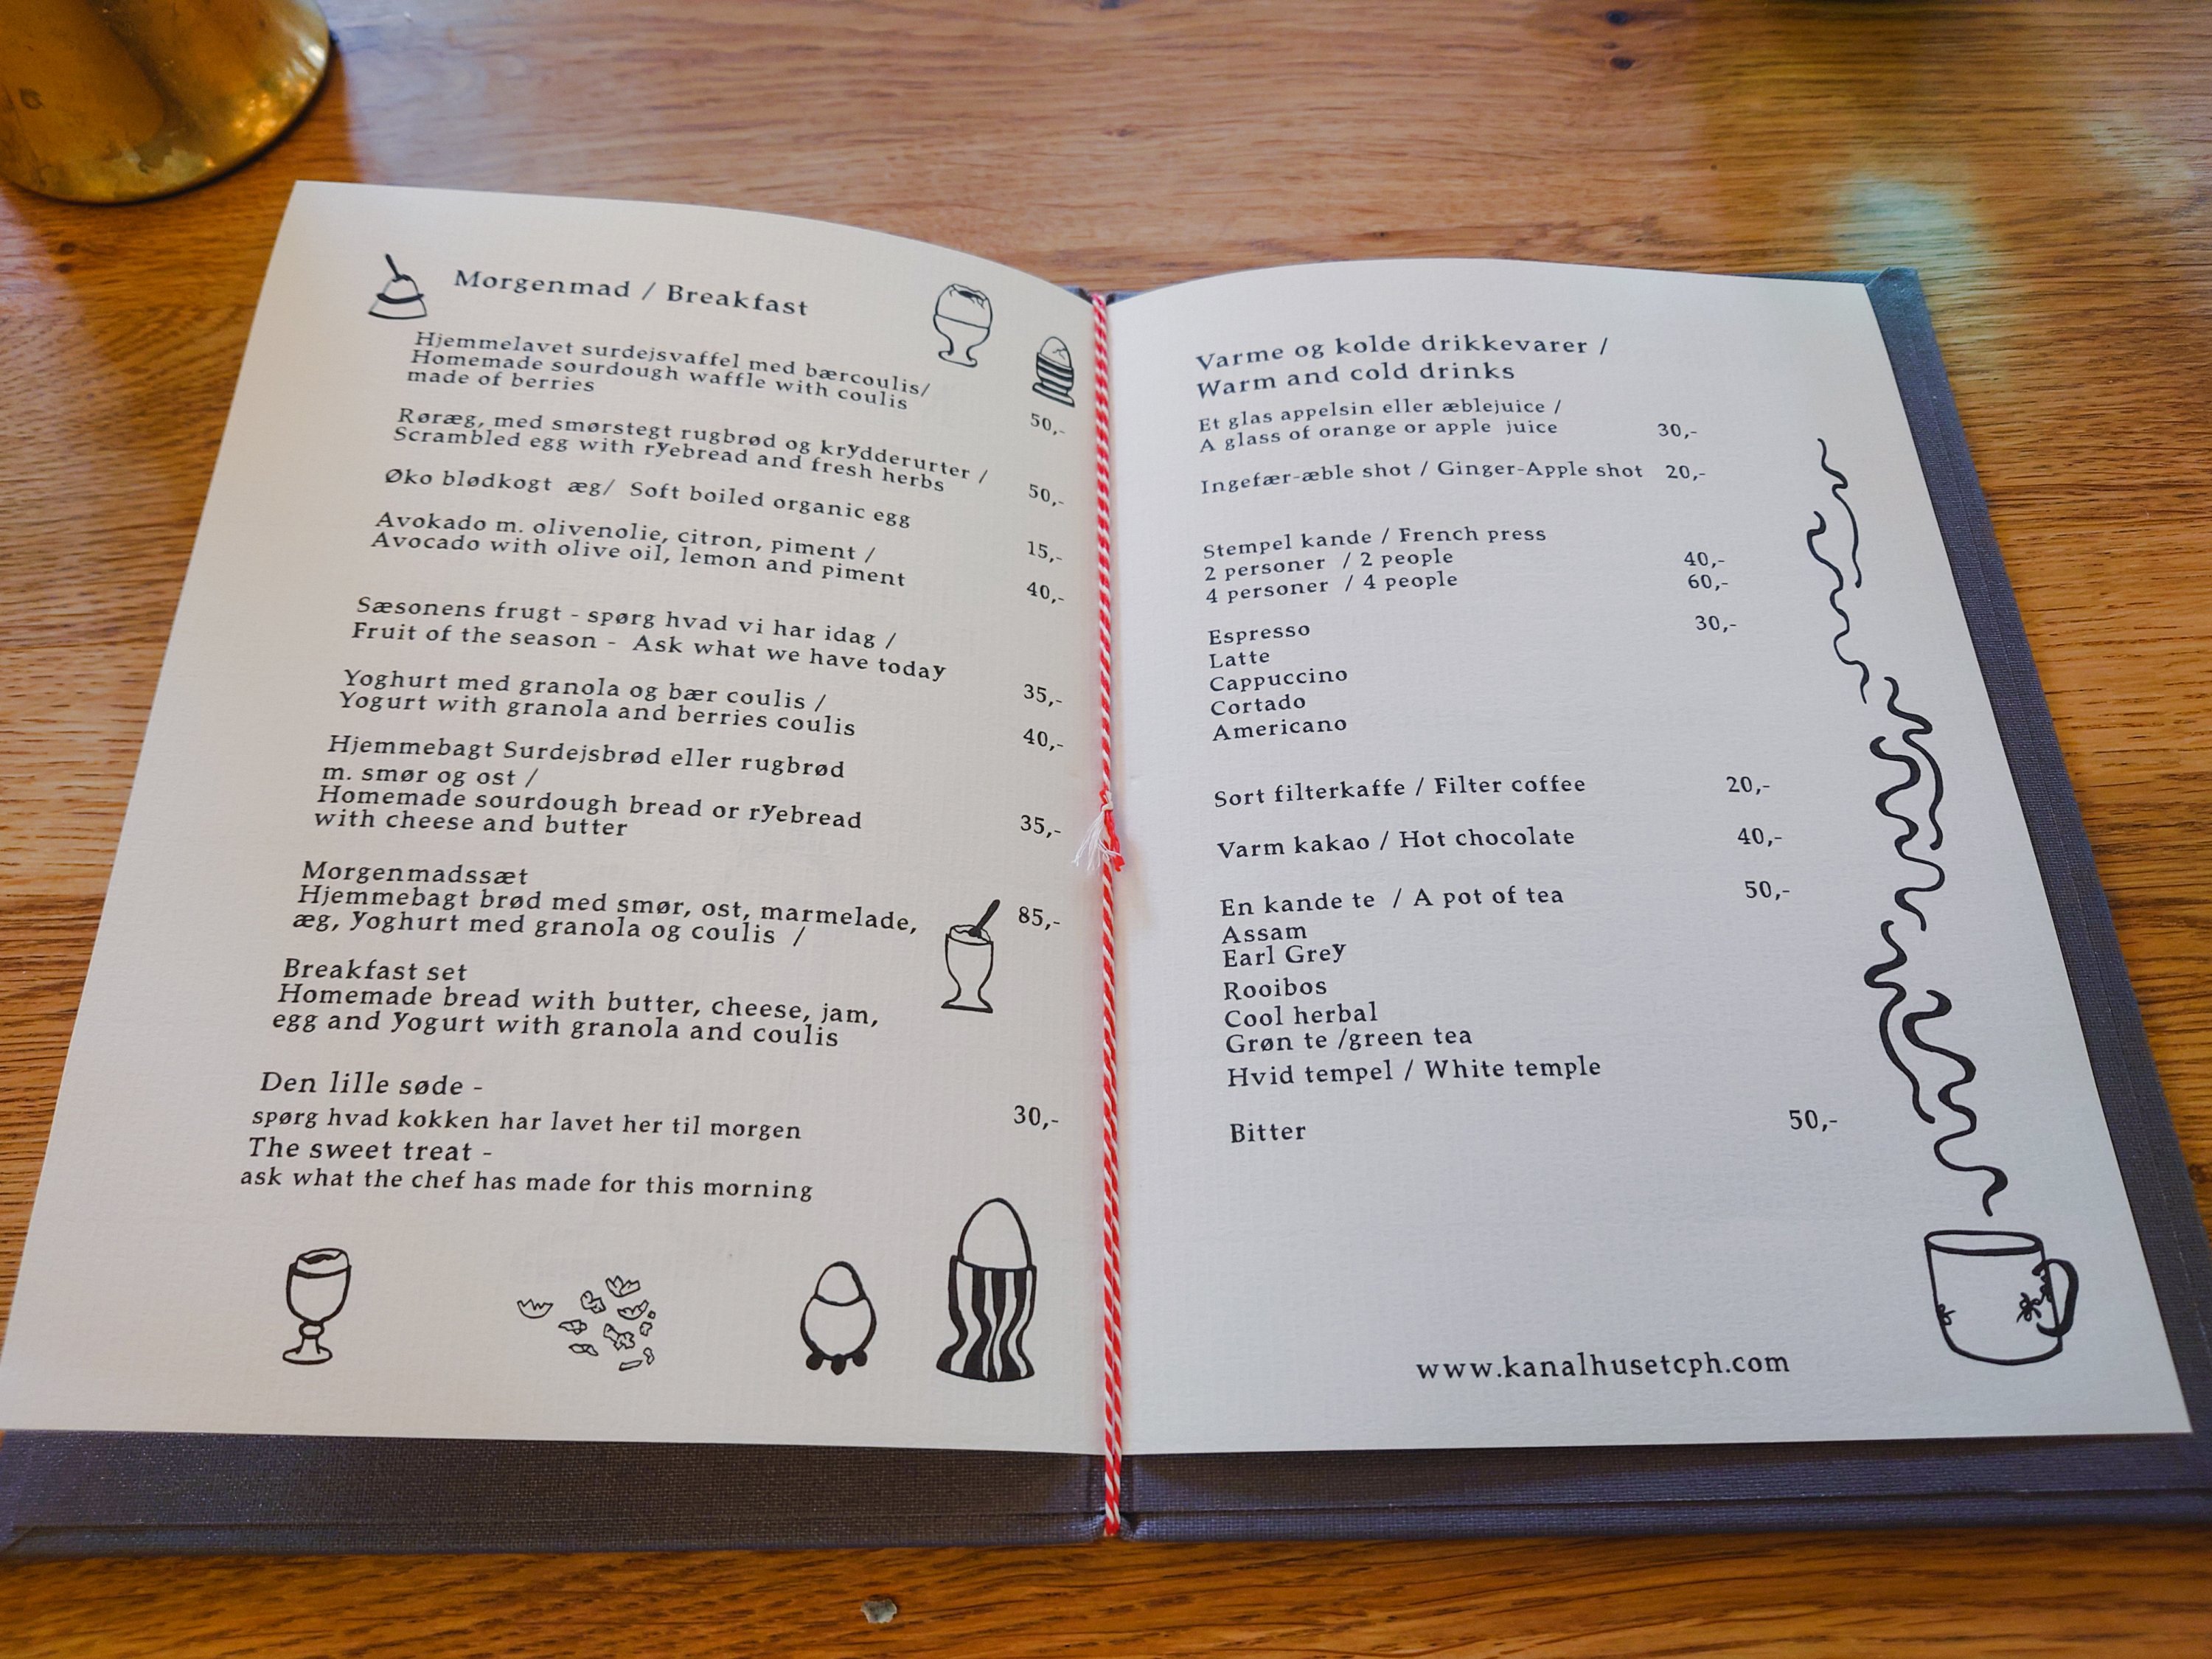 Morgenmad / Breakfast
Hjemmelavet surdejsvaffel med bærcoulis/
Homemade sourdough waffle with coulis
made of berries 50,-
Røræg, med smørstegt rugbrød og krydderurter /
Scrambled egg with ryebread and fresh herbs 50,-
Øko blødkogt æg/ Soft boiled organic egg 15,-
Avokado m. olivenolie, citron, piment /
Avocado with olive oil, lemon and piment 40,-
Sæsonens frugt - spørg hvad vi har idag /
Fruit of the season - Ask what we have today 35,-
Yoghurt med granola og bær coulis /
Yogurt with granola and berries coulis 40,-
Hjemmebagt Surdejsbrød eller rugbrød
m. smør og ost /
Homemade sourdough bread or ryebread
with cheese and butter 35,-
Morgenmadssæt
Hjemmebagt brød med smør, ost, marmelade, 85,-
æg, yoghurt med granola og coulis /
Breakfast set
Homemade bread with butter, cheese, jam,
egg and yogurt with granola and coulis
Den lille søde -
spørg hvad kokken har lavet her til morgen 30,-
The sweet treat -
ask what the chef has made for this morning
Varme og kolde drikkevarer /
Warm and cold drinks
Et glas appelsin eller æblejuice /
A glass of orange or apple juice 30,-
Ingefær-æble shot / Ginger-Apple shot 20,-
Stempel kande / French press
2 personer / 2 people 40,-
4 personer / 4 people 60,-
Espresso 30,-
Latte
Cappuccino
Cortado
Americano
Sort filterkaffe / Filter coffee 20,-
Varm kakao / Hot chocolate 40,-
En kande te / A pot of tea 50,-
Assam
Earl Grey
Rooibos
Cool herbal
Grøn te /green tea
Hvid tempel / White temple
Bitter 50,-
www.kanalhusetcph.com